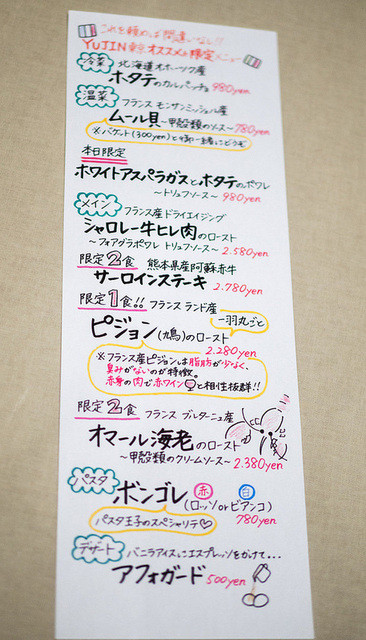 これを頼めば間違いなし!!
YUJIN東京オススメ&限定メニュー
冷菜 北海道オホーツク産
ホタテのカルパッチョ 980yen
温菜 フランス モンサンミッシェル産
ムール貝〜甲殻類のソース〜780yen
※バケット(300yen)と御一緒にどうぞ
本日限定
ホワイトアスパラガスとホタテのポワレ
〜トリュフソース〜 980yen
メイン フランス産ドライエイジング
シャロレー牛ヒレ肉のロースト
〜フォアグラポワレ トリュフソース〜 2.580yen
限定2食 熊本県産阿蘇赤牛
サーロインステーキ 2.780yen
限定1食!! フランス ランド産
一羽丸ごと
ピジョン(鳩)のロースト
2.280yen
※フランス産ピジョンは脂肪が少なく、
臭みがないのが特徴。
赤身の肉で赤ワインと相性抜群!!
限定2食 フランス ブルターニュ産
オマール海老のロースト
〜甲殻類のクリームソース〜 2.380yen
パスタ ボンゴレ 赤 白
(ロッソorビアンコ)
パスタ王子のスペシャリテ♡ 780yen
デザート バニラアイスにエスプレッソをかけて...
アフォガード 500yen